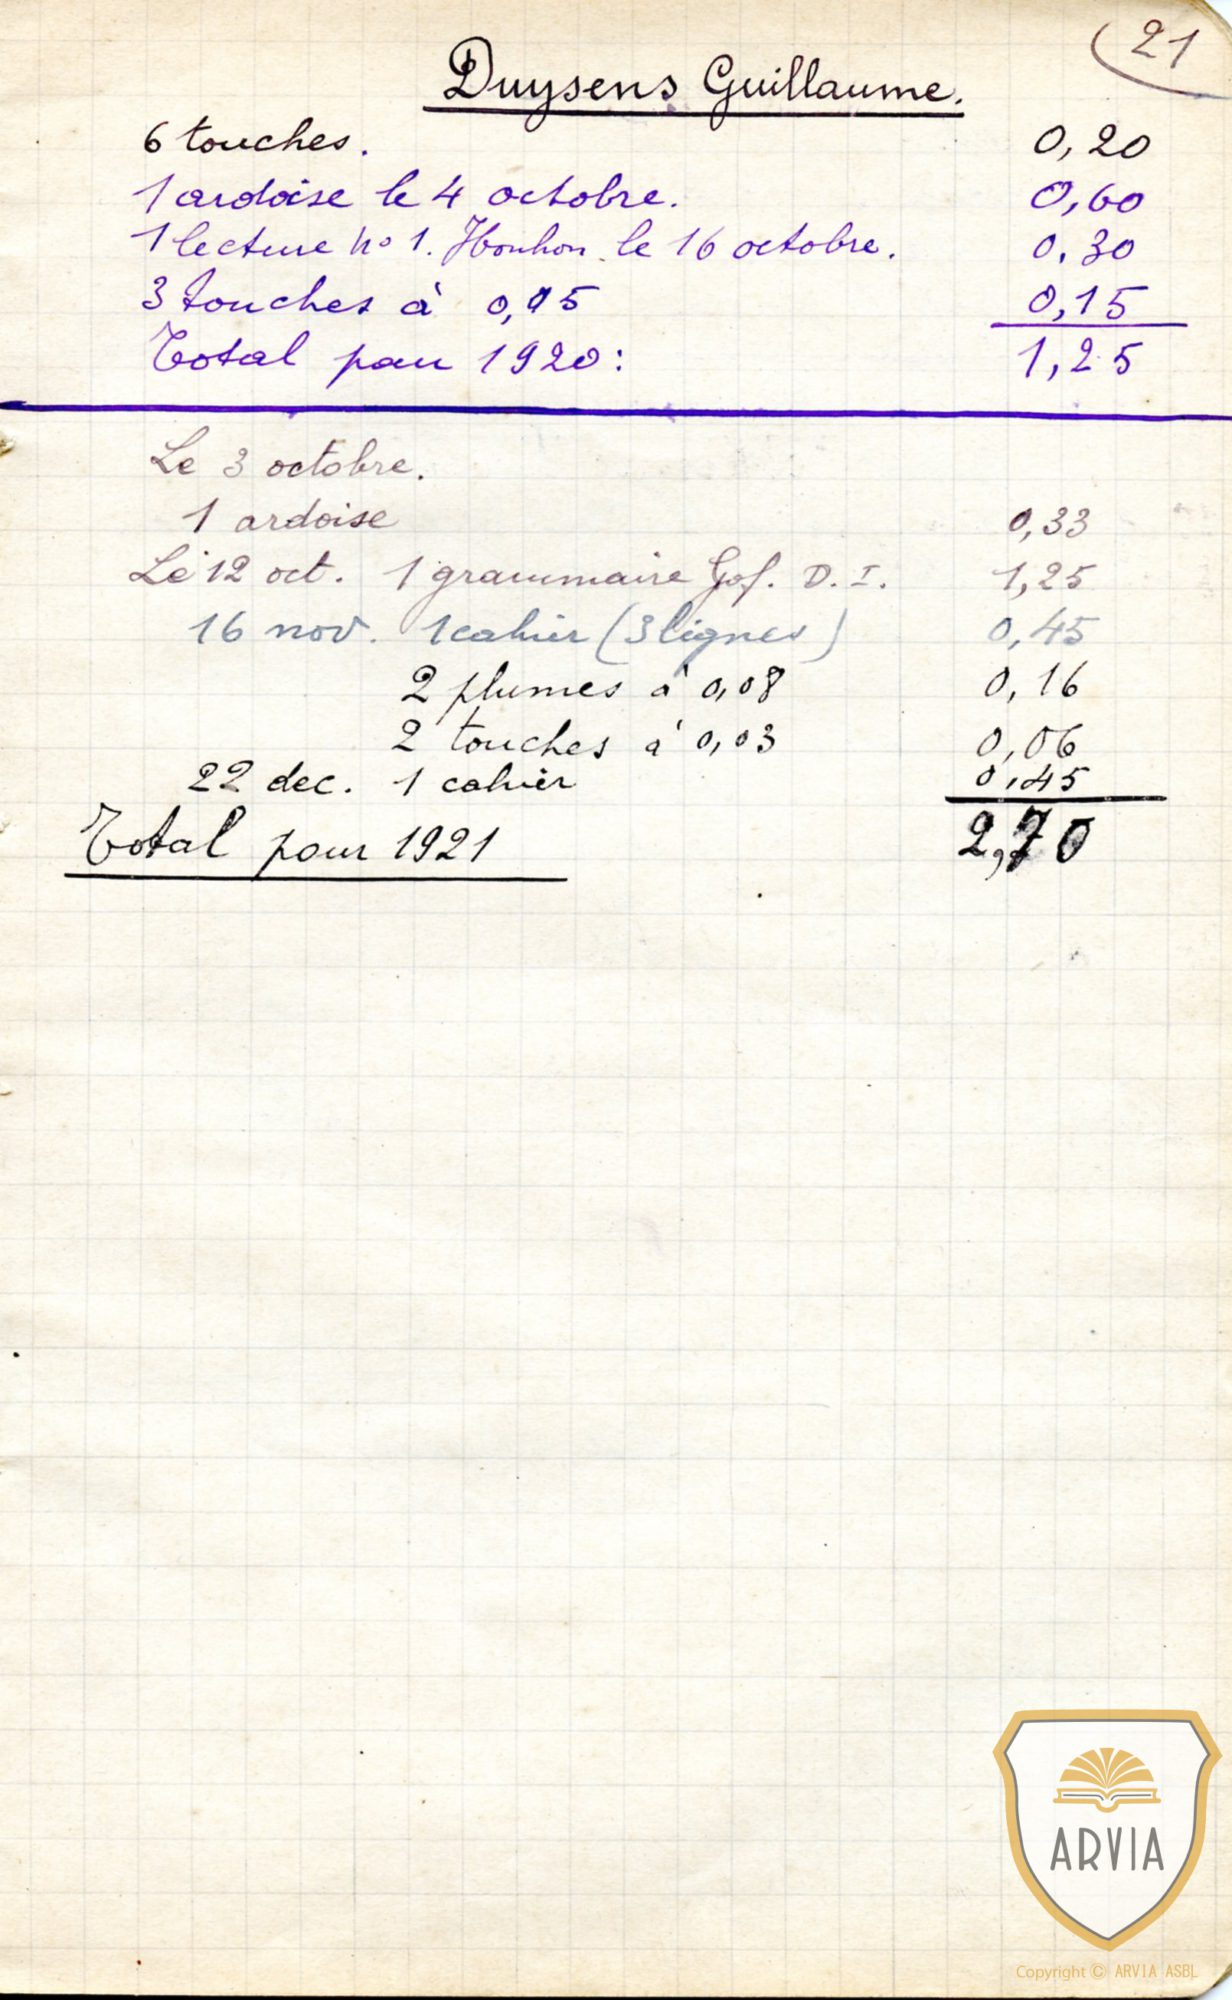 21
Duysens Guillaume.
6 touches. 0,20
1 ardoise le 4 octobre. 0,60
1 lecture No 1. Honhon le 16 octobre. 0,30
3 touches à 0,05 0,15
Total pour 1920: 1,25
Le 3 octobre.
1 ardoise 0,33
Le 12 oct. 1 grammaire Gof. D. I. 1,25
16 nov. 1 cahier (3 lignes) 0,45
2 plumes à 0,08 0,16
2 touches à 0,03 0,06
22 dec. 1 cahier 0,45
Total pour 1921 2,70
ARVIA
Copyright © ARVIA ASBL